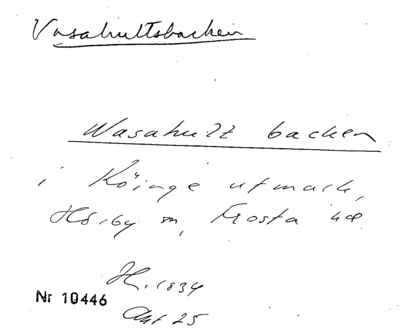 Vasahultsbacken
Wasahult backen
i Köinge utmark,
Hörby sn, Frosta hd
H. 1834
Akt 25
Nr 10446